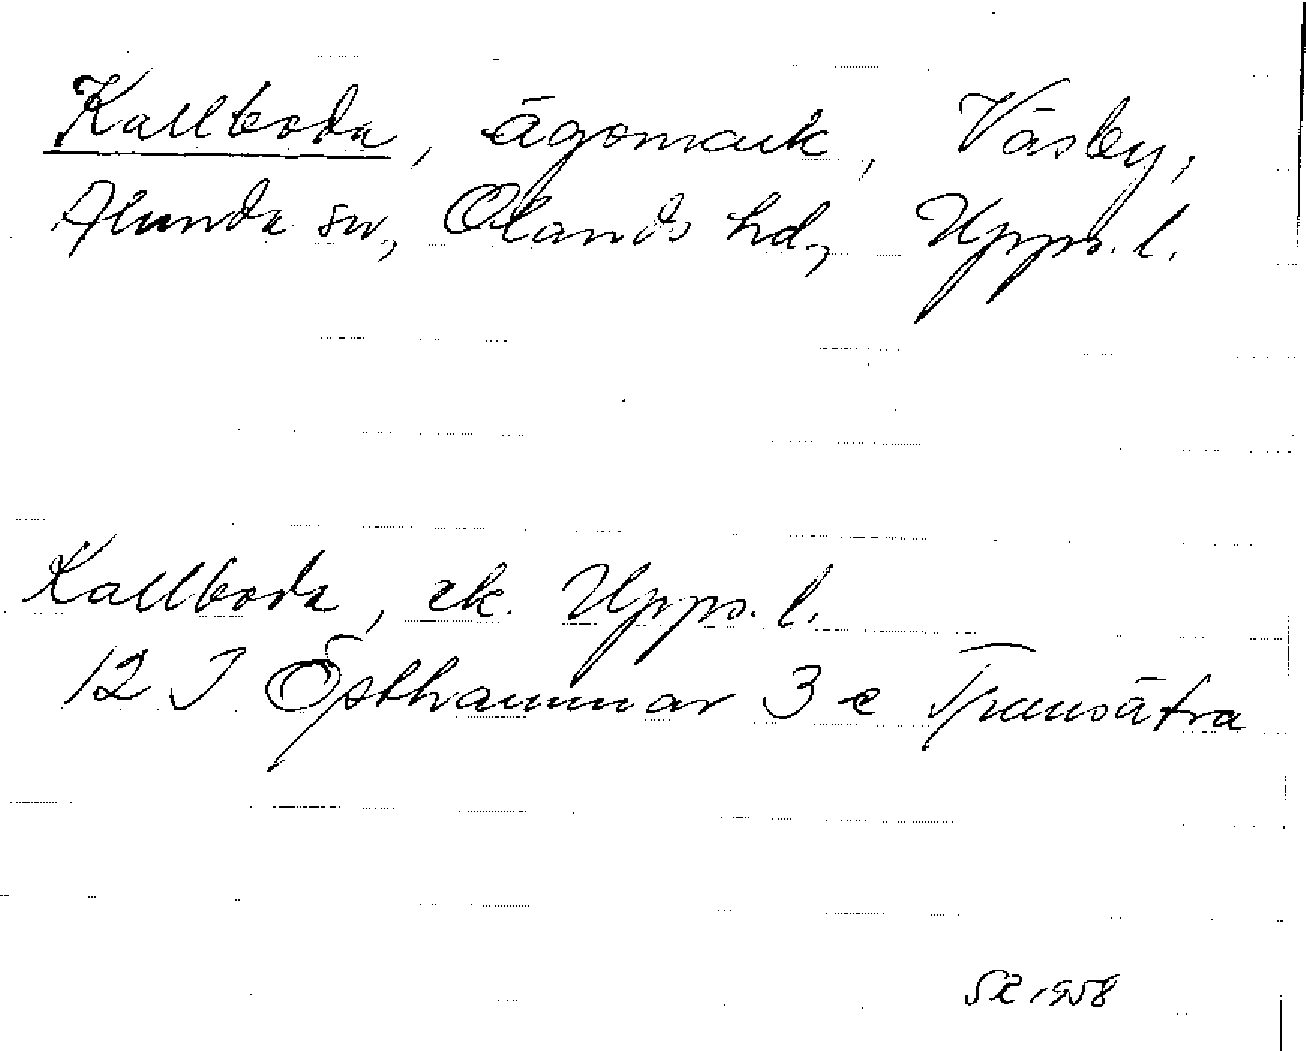 Kallboda, ägomark, Väsby,
Alunda sn, Olands hd, Upps. l.
Kallboda, ek. Upps. l.
12 I Östhammar 3 e Trensätra
1958